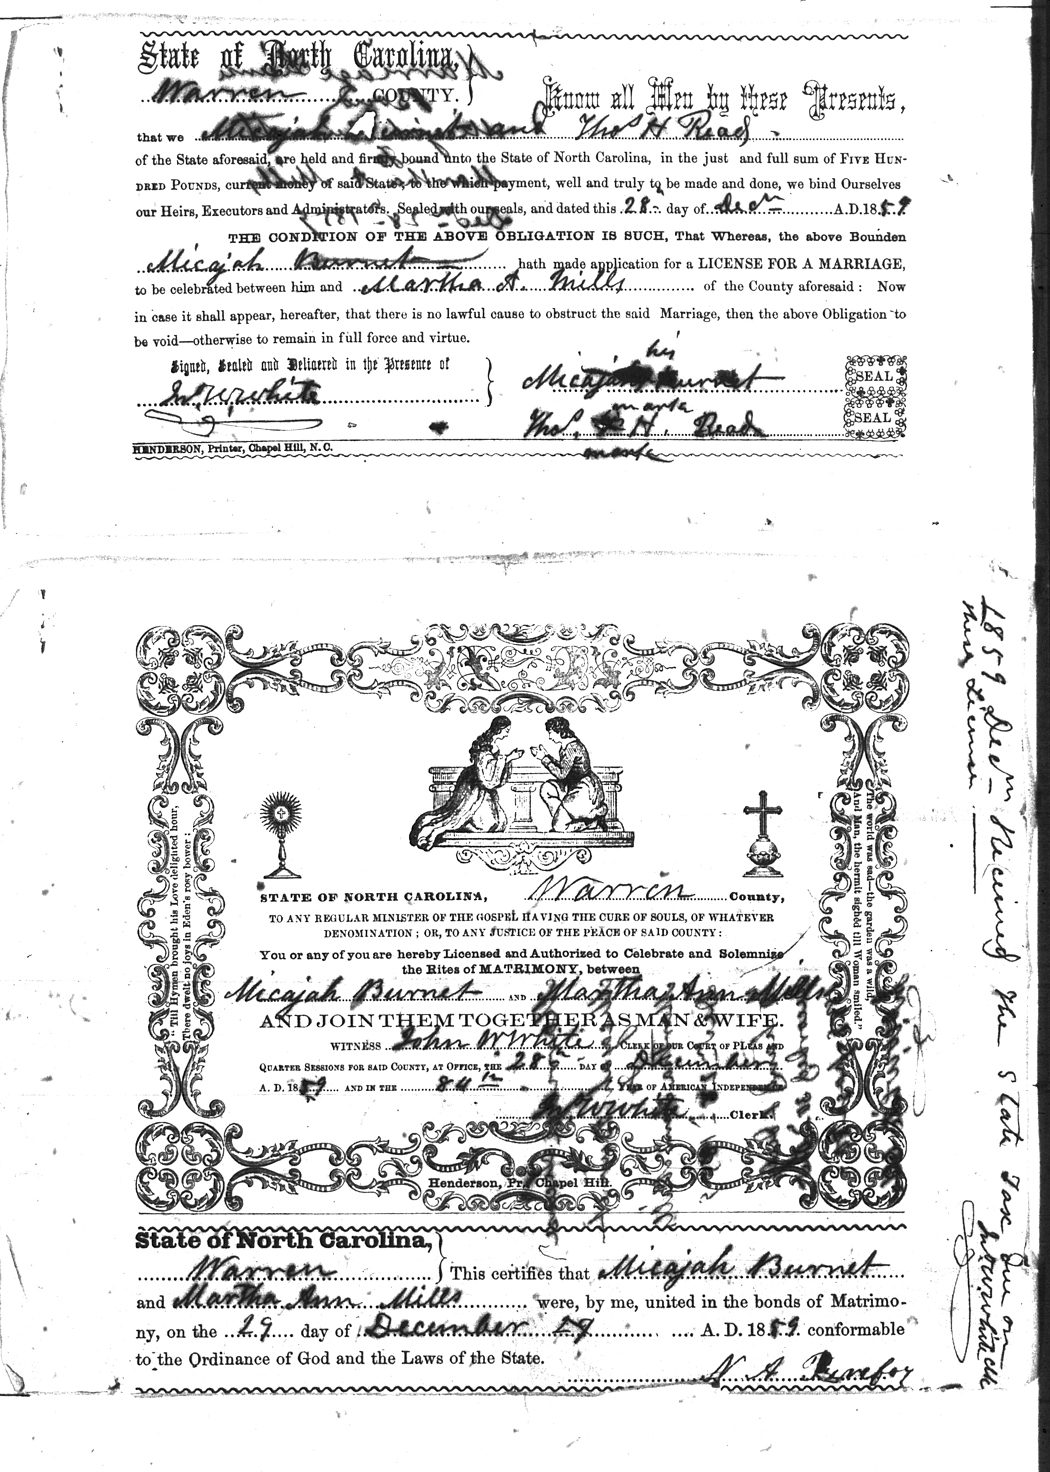 State of North Carolina,
Warren COUNTY.
Know all Men by these Presents,
that we Micajah and Thos H Read
of the State aforesaid, are held and firmly bound unto the State of North Carolina, in the just and full sum of FIVE HUN-
DRED POUNDS, current money of said State, to the which payment, well and truly to be made and done, we bind Ourselves
our Heirs, Executors and Administrators. Sealed with our seals, and dated this 28 day of Decm A.D. 1859
THE CONDITION OF THE ABOVE OBLIGATION IS SUCH, That Whereas, the above Bounden
Micajah Burnet hath made application for a LICENSE FOR A MARRIAGE,
to be celebrated between him and Martha A. Mills of the County aforesaid: Now
in case it shall appear, hereafter, that there is no lawful cause to obstruct the said Marriage, then the above Obligation to
be void—otherwise to remain in full force and virtue.
Signed, Sealed and Delivered in the Presence of
Jno W. White
his
Micajah Burnet
mark
SEAL
Thos. H. Read
mark
SEAL
HENDERSON, Printer, Chapel Hill, N. C.
"Till Hymen brought his Love delighted hour,
There dwelt no joys in Eden's rosy bower:
The world was sad—the garden was a wild,
And Man, the hermit sighed till Woman smiled."
STATE OF NORTH CAROLINA, Warren County,
TO ANY REGULAR MINISTER OF THE GOSPEL HAVING THE CURE OF SOULS, OF WHATEVER
DENOMINATION; OR, TO ANY JUSTICE OF THE PEACE OF SAID COUNTY:
You or any of you are hereby Licensed and Authorized to Celebrate and Solemnize
the Rites of MATRIMONY, between
Micajah Burnet AND Martha Ann Mills
AND JOIN THEM TOGETHER AS MAN & WIFE.
WITNESS John W White CLERK OF OUR COURT OF PLEAS AND
QUARTER SESSIONS FOR SAID COUNTY, AT OFFICE, THE 28 DAY OF December
A. D. 1859 AND IN THE 84th YEAR OF AMERICAN INDEPENDENCE
Jno W White Clerk.
Henderson, Pr. Chapel Hill.
1859 Decm Received the State Tax due on
this License
Jno W White Clk
State of North Carolina,
Warren This certifies that Micajah Burnet
and Martha Ann Mills were, by me, united in the bonds of Matrimo-
ny, on the 29 day of December 59 A. D. 1859 conformable
to the Ordinance of God and the Laws of the State.
N. A. Purefoy